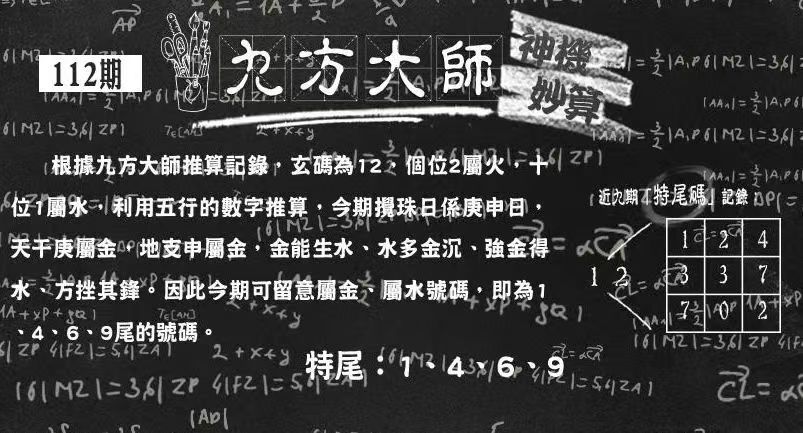 112期
九方大師
神機
妙算
根據九方大師推算記錄，玄碼為12，個位2屬火，十
位1屬水，利用五行的數字推算，今期攪珠日係庚申日，
天干庚屬金，地支申屬金，金能生水、水多金沉、強金得
水、方挫其鋒。因此今期可留意屬金、屬水號碼，即為1
、4、6、9尾的號碼。
特尾：1、4、6、9
近九期「特尾碼」記錄
1 2 4
1 2
3 3 7
7 0 2